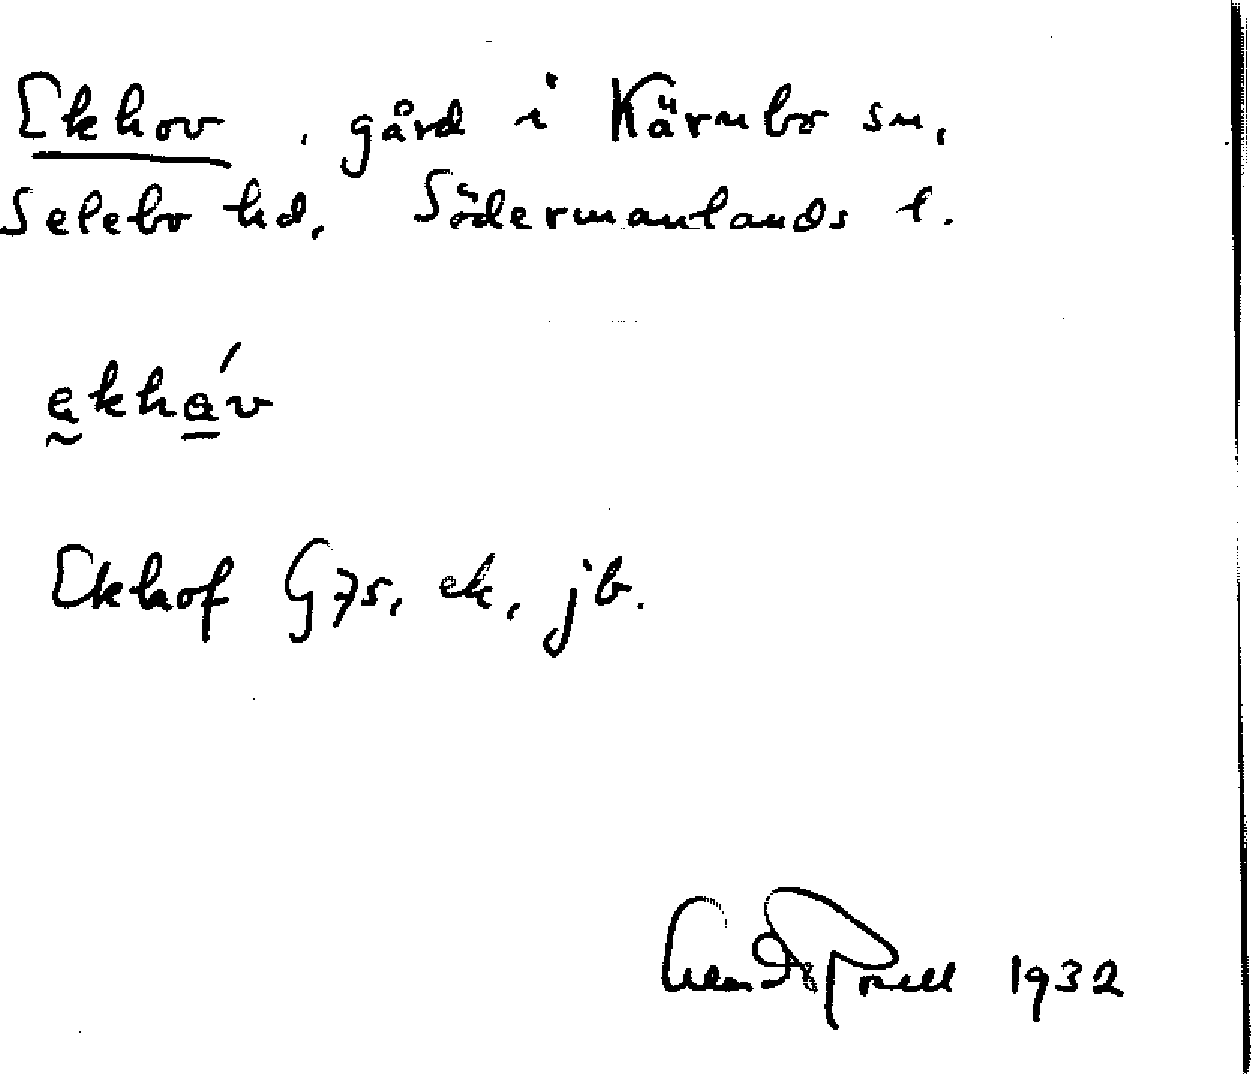 Ekhov, gård i Kärnbo sn,
Selebo hd, Södermanlands l.
ekháv
Ekhof G75, ek, jb.
1932